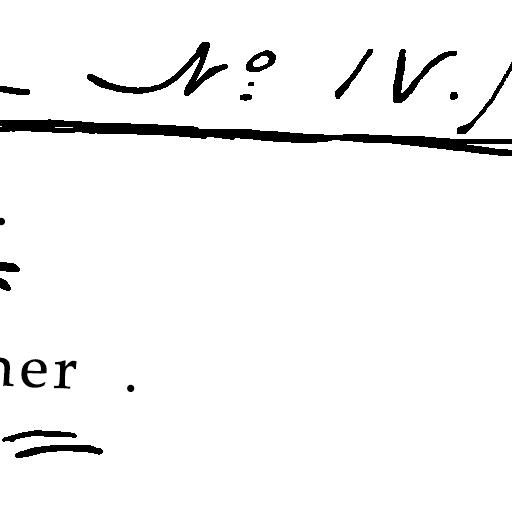 Nº IV.
ner .